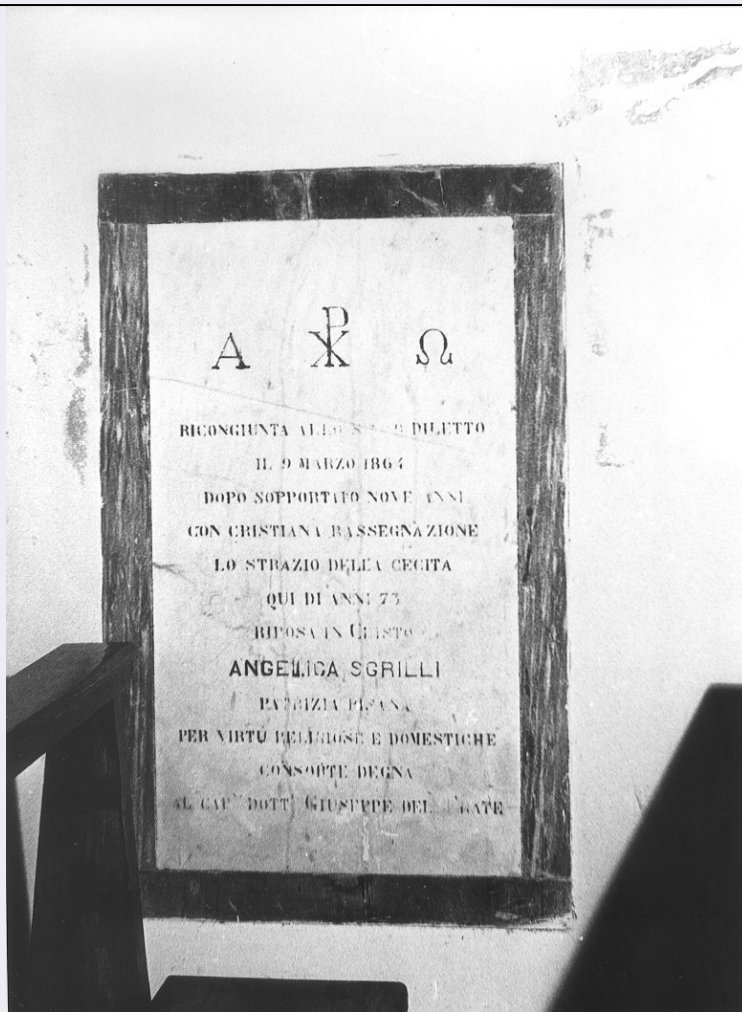 Α ☧ Ω
RICONGIUNTA ALLO DILETTO
IL 9 MARZO 1864
DOPO SOPPORTATO NOVE ANNI
CON CRISTIANA RASSEGNAZIONE
LO STRAZIO DELLA CECITA
QUI DI ANNI 73
RIPOSA IN CRISTO
ANGELICA SGRILLI
PATRIZIA PISANA
PER VIRTÙ RELIGIOSE E DOMESTICHE
CONSORTE DEGNA
AL CAV DOTT. GIUSEPPE DEL